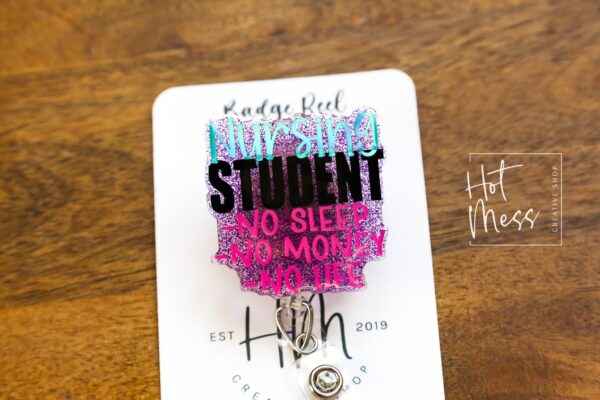 Badge Reel
Nursing
STUDENT
-NO SLEEP
-NO MONEY
-NO LIFE
EST
2019
Hot
Mess
CREATIVE SHOP